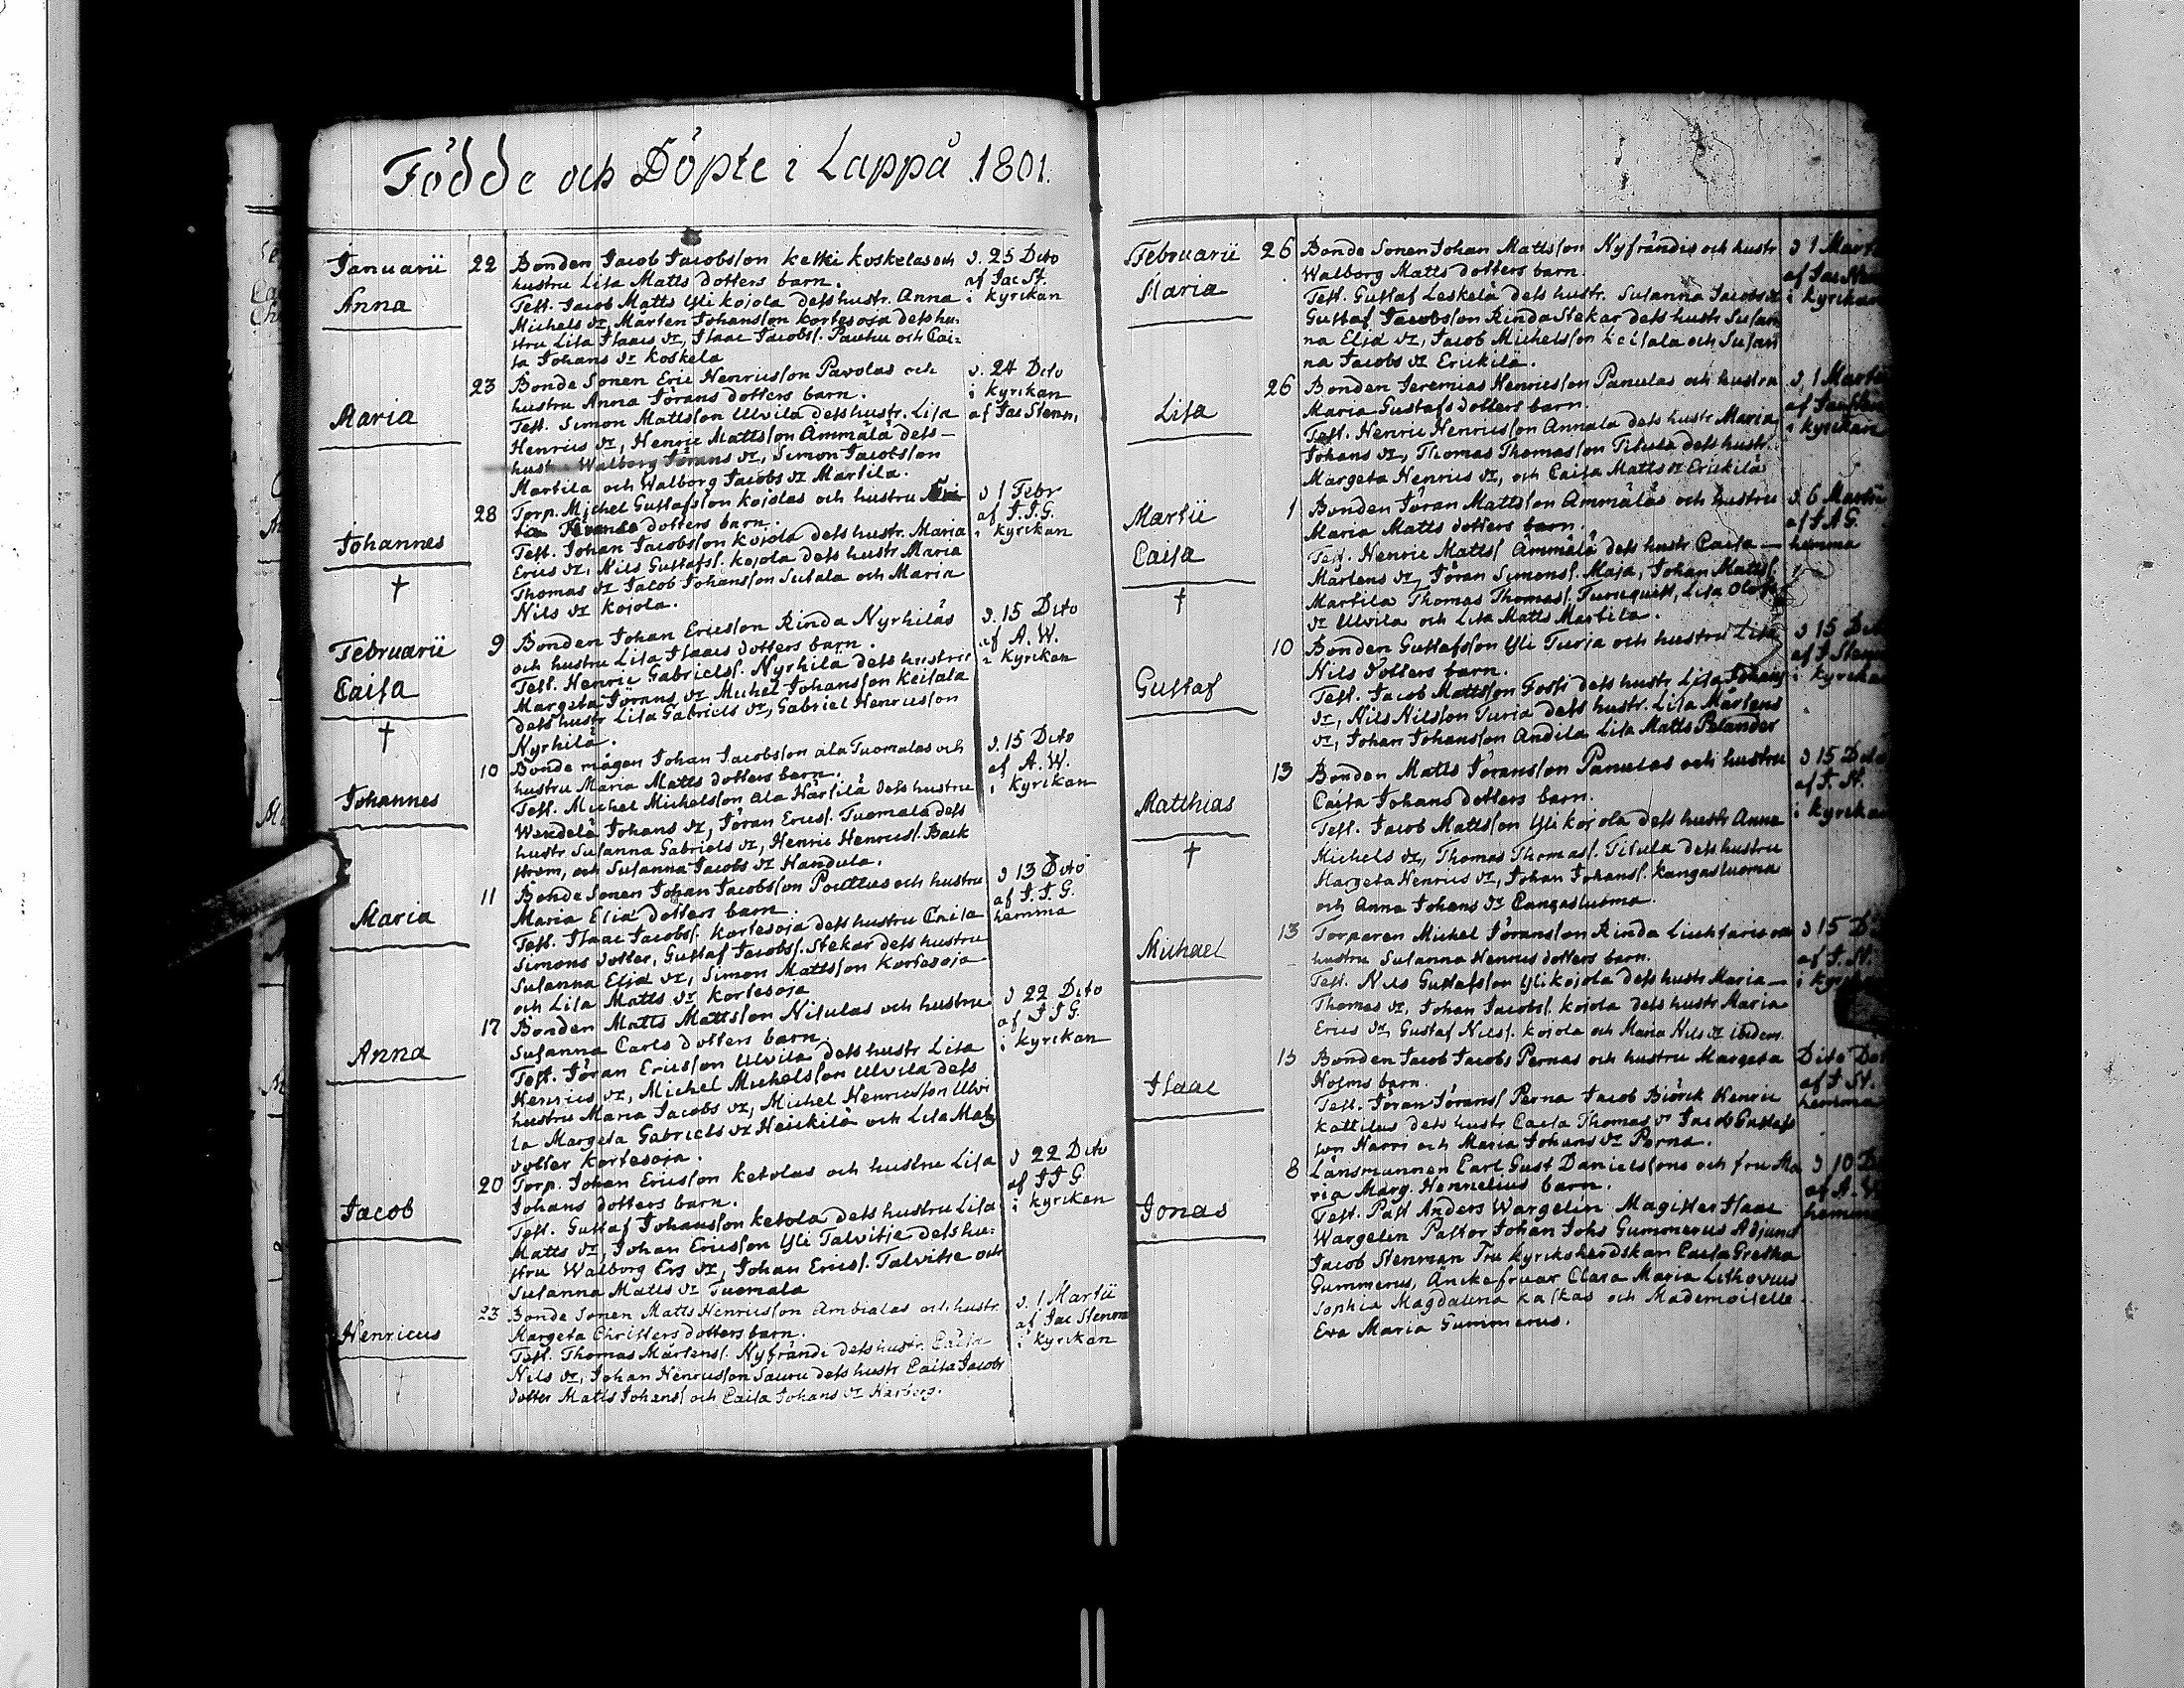 Födde och Döpte i Lappå 1801.
Januarii 22 Bonden Jacob Jacobsson Ketki koskelas och d. 25 Dito
hustru Lisa Matts dotters barn. af Jac St.
Anna Test. Jacob Matts Yli kojola dess hustr. Anna i kyrckan
Michels dr, Mårten Johansson Kortesoja dess hu-
stru Lisa Isaacs dr, Isaac Jacobss. Pauhu och Cai-
sa Johans dr Koskela
23 Bonde Sonen Eric Henricsson Pavolas och d. 24 Dito
hustru Anna Jörans dotters barn. i kyrckan
Maria Test. Simon Mattsson Ulvila dess hustr. Lisa af Jac Stenm,
Henrics dr, Henric Mattsson Ämmälä dess—
hustru Walborg Jörans dr, Simon Jacobsson
Martila och Walborg Jacobs dr Martila.
28 Torp. Michel Gustafsson Kojolas och hustru d 1 Febr
dotters barn. af J.J.G.
Johannes Test. Johan Jacobsson Kojola dess hustr. Maria i kyrckan
Erics dr, Nils Gustafss. Kojola dess hustr Maria
† Thomas dr Jacob Johansson Susala och Maria
Nils dr Kojola.
Februarii 9 Bonden Johan Ericsson Rinda Nyrhiläs d. 15 Dito
och hustru Lisa Isaacs dotters barn. af A. W.
Caisa Test. Henric Gabrielss. Nyrhilä dess hustru i Kyrckan
Margeta Jörans dr Michel Johansson Keisala
† dess hustr Lisa Gabriels dr, Gabriel Henricsson
Nyrhilä.
10 Bonde mågen Johan Jacobsson ala Tuomalas och d. 15 Dito
hustru Maria Matts dotters barn. af A. W.
Johannes Test. Michel Michelsson ala Härsilä dess hustru i Kyrckan
Wendela Johans dr, Jöran Ericss. Tuomala dess
hustr Susanna Gabriels dr, Henric Henricss. Back
ström, och Susanna Jacobs dr Handula.
11 Bonde Sonen Johan Jacobsson Pouttus och hustru d 13 Dito
Maria Eliæ dotters barn. af J. J. G.
Maria Test. Isaac Jacobss. Kortesoja dess hustru Caisa hemma
Simons dotter, Gustaf Jacobss. Stekar dess hustru
Susanna Eliæ dr, Simon Mattsson Kortesoja
och Lisa Matts dr Kortesoja
17 Bonden Matts Mattsson Nisulas och hustru d 22 Dito
Susanna Carls dotters barn. af J J G.
Anna Test. Jöran Ericsson Ulvila dess hustr Lisa i kyrckan
Henrics dr, Michel Michelsson Ulvila dess
hustru Maria Jacobs dr, Michel Henricsson Ulvi
la Margeta Gabriels dr Heickilä och Lisa Mats
dotter Kortesoja.
20 Torp. Johan Ericsson Ketolas och hustru Lisa d 22 Dito
Johans dotters barn. af J J G
Jacob Test. Gustaf Johansson Ketola dess hustru Lisa i kyrckan
Matts dr, Johan Ericsson Yli Talvitje dess hu-
stru Walborg Ers dr, Johan Ericss. Talvitie och
Susanna Matts dr Tuomala
23 Bonde Sonen Matts Henricsson Ambialas och hustr d. 1 Martii
Margeta Christers dotters barn. af Jac Stenm
Henricus Test. Thomas Mårtenss. Nyfrändi dess hustr. Caisa i kyrckan
† Nils dr, Johan Henricsson Sauru dess hustr Caisa Jacobs
dotter Matts Johanss och Caisa Johans dr Harberg.
Februarii 26 Bonde Sonen Johan Mattsson Nyfrändis och hustr d 1 Mart
Walborg Matts dotters barn. af Jac
Maria Test. Gustaf Leskelä dess hustr. Susanna Jacobs dr i kyrckan
Gustaf Jacobsson Rinda Stekar dess hustr Susan
na Eliæ dr, Jacob Michelsson Keisala och Susan
na Jacobs dr Erickilä.
26 Bonden Jeremias Henricsson Panulas och hustru d. 1 Martii
Maria Gustafs dotters barn. af
Lisa Test. Henric Henricsson Annala dess hustr Maria i kyrckan
Johans dr, Thomas Thomasson Tisula dess hustr.
Margeta Henrics dr, och Caisa Matts dr Erickilä
Martii 1 Bonden Jöran Mattsson Ammäläs och hustru d. 6 Martii
Maria Matts dotters barn. af J A G.
Caisa Test. Henric Matts Ämmälä dess hustr Caisa — hemma
Mårtens dr, Jöran Simonss. Maja, Johan Mattss.
† Martila Thomas Thomass. Turnquist, Lisa Olofs
dr Ulvila och Lisa Matts Martila.
10 Bonden Gustafsson Yli Turja och hustru Lisa d 15 Dito
Nils dotters barn. af J Stenm
Gustaf Test. Jacob Mattsson Fosti dess hustr Lisa Johans i kyrckan
dr, Nils Nilsson Turja dess hustr. Lisa Mårtens
dr, Johan Johansson Andila Lisa Matts Pelander
13 Bonden Matts Jöransson Panulas och hustru d 15 Dito
Caisa Johans dotters barn. af J. St.
Matthias Test. Jacob Mattsson Yli kojola dess hustr Anna i kyrckan
† Michels dr, Thomas Thomass. Tisula dess hustru
Margeta Henrics dr, Johan Johanss. Kangasluoma
och Anna Johans dr Cangasluoma.
13 Torparen Michel Jöransson Rinda och d 15 D
Michael hustru Susanna Henrics dotters barn. af J. St.
Test. Nils Gustafsson Yli kojola dess hustr Maria— i kyrckan
Thomas dr, Johan Jacobss. Kojola dess hustr Maria
Erics dr, Gustaf Nilss. Kojola och Maria Nils dr ibidem.
15 Bonden Jacob Jacobs Pernas och hustru Margeta Dito
Holms barn. af J St.
Isaac Test. Jöran Jöranss Perna Jacob Biörck Henric hemma
Kattilus dess hustr Caisa Thomas dr Jacob Gustafs
son Harri och Maria Johans dr Perna.
8 Länsmannen Carl Gust Danielssons och fru Ma d 10 D
ria Marg. Hennelius barn. af A. W
Jonas Test. Past Anders Wargelin Magister Isaac hemma
Wargelin Pastor Johan Johs Gummerus Adjunct
Jacob Stenman Fru kyrkoherdskan Caisa Gretha
Gummerus, Änckefruar Clara Maria Lithovius
Sophia Magdalena Kaskas och Mademoiselle
Eva Maria Gummerus.